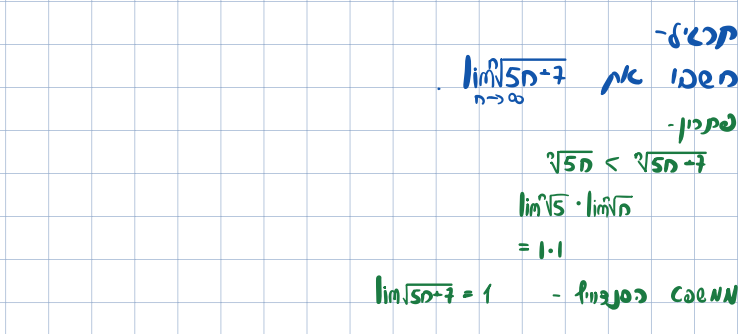 תרגיל-
חשבו את lim n→∞ ⁿ√5n+7 .
פתרון-
ⁿ√5n < ⁿ√5n+7
lim ⁿ√5 · lim ⁿ√n
= 1·1
ממשפט הסנדוויץ' - lim √5n+7 = 1